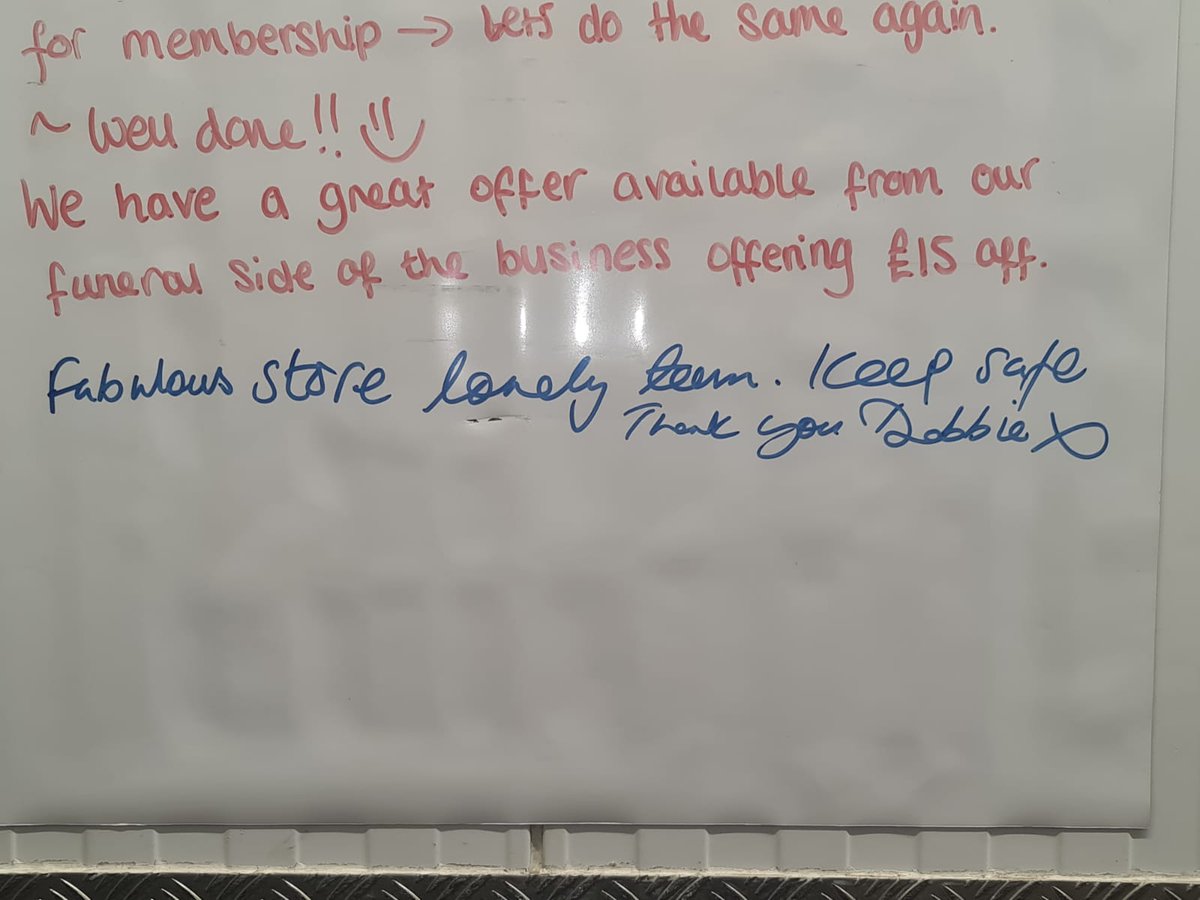 for membership → Lets do the same again.
~ Well done!! :)
We have a great offer available from our
funeral side of the business offering £15 off.
Fabulous store lovely team. Keep safe
Thank you Debbie x